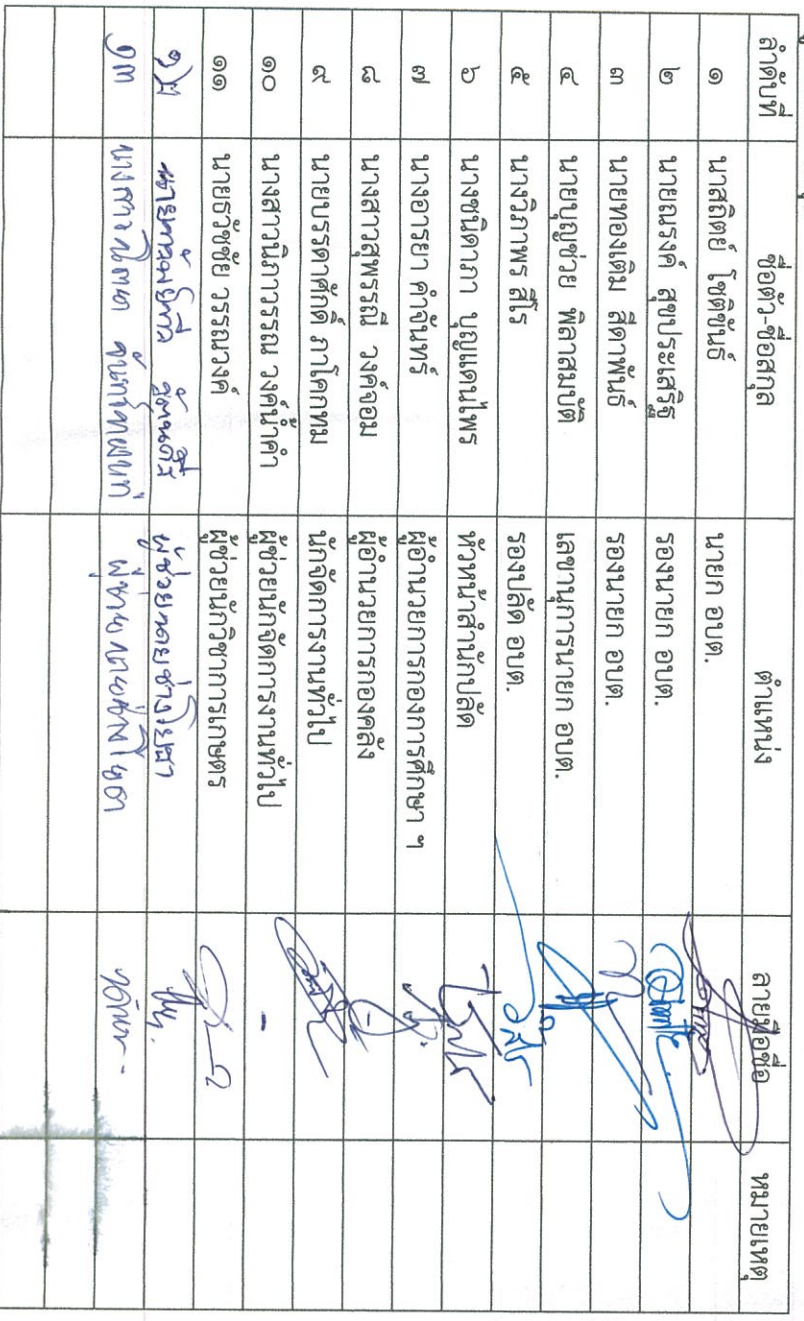 ลำดับที่ ชื่อตัว-ชื่อสกุล ตำแหน่ง ลายมือชื่อ หมายเหตุ
๑ นาสถิตย์ โชติขันธ์ นายก อบต.
๒ นายณรงค์ สุขประเสริฐ รองนายก อบต.
๓ นายทองเติม สีดาพันธ์ รองนายก อบต.
๔ นายบุญช่วย พิลาสมบัติ เลขานุการนายก อบต.
๕ นางวิภาพร สีโร รองปลัด อบต.
๖ นางชนิดาภา บุญแดนไพร หัวหน้าสำนักปลัด
๗ นางอารยา คำจันทร์ ผู้อำนวยการกองการศึกษา ฯ
๘ นางสาวสุพรรณี วงค์จอม ผู้อำนวยการกองคลัง
๙ นายบรรดาศักดิ์ ภาโคกทม นักจัดการงานทั่วไป
๑๐ นางสาวนิภาวรรณ วงค์น้ำคำ ผู้ช่วยนักจัดการงานทั่วไป -
๑๑ นายธวัชชัย วรรณวงค์ ผู้ช่วยนักวิชาการเกษตร
๑๒ ผู้ช่วยนายช่างโยธา
๑๓ นางสาว